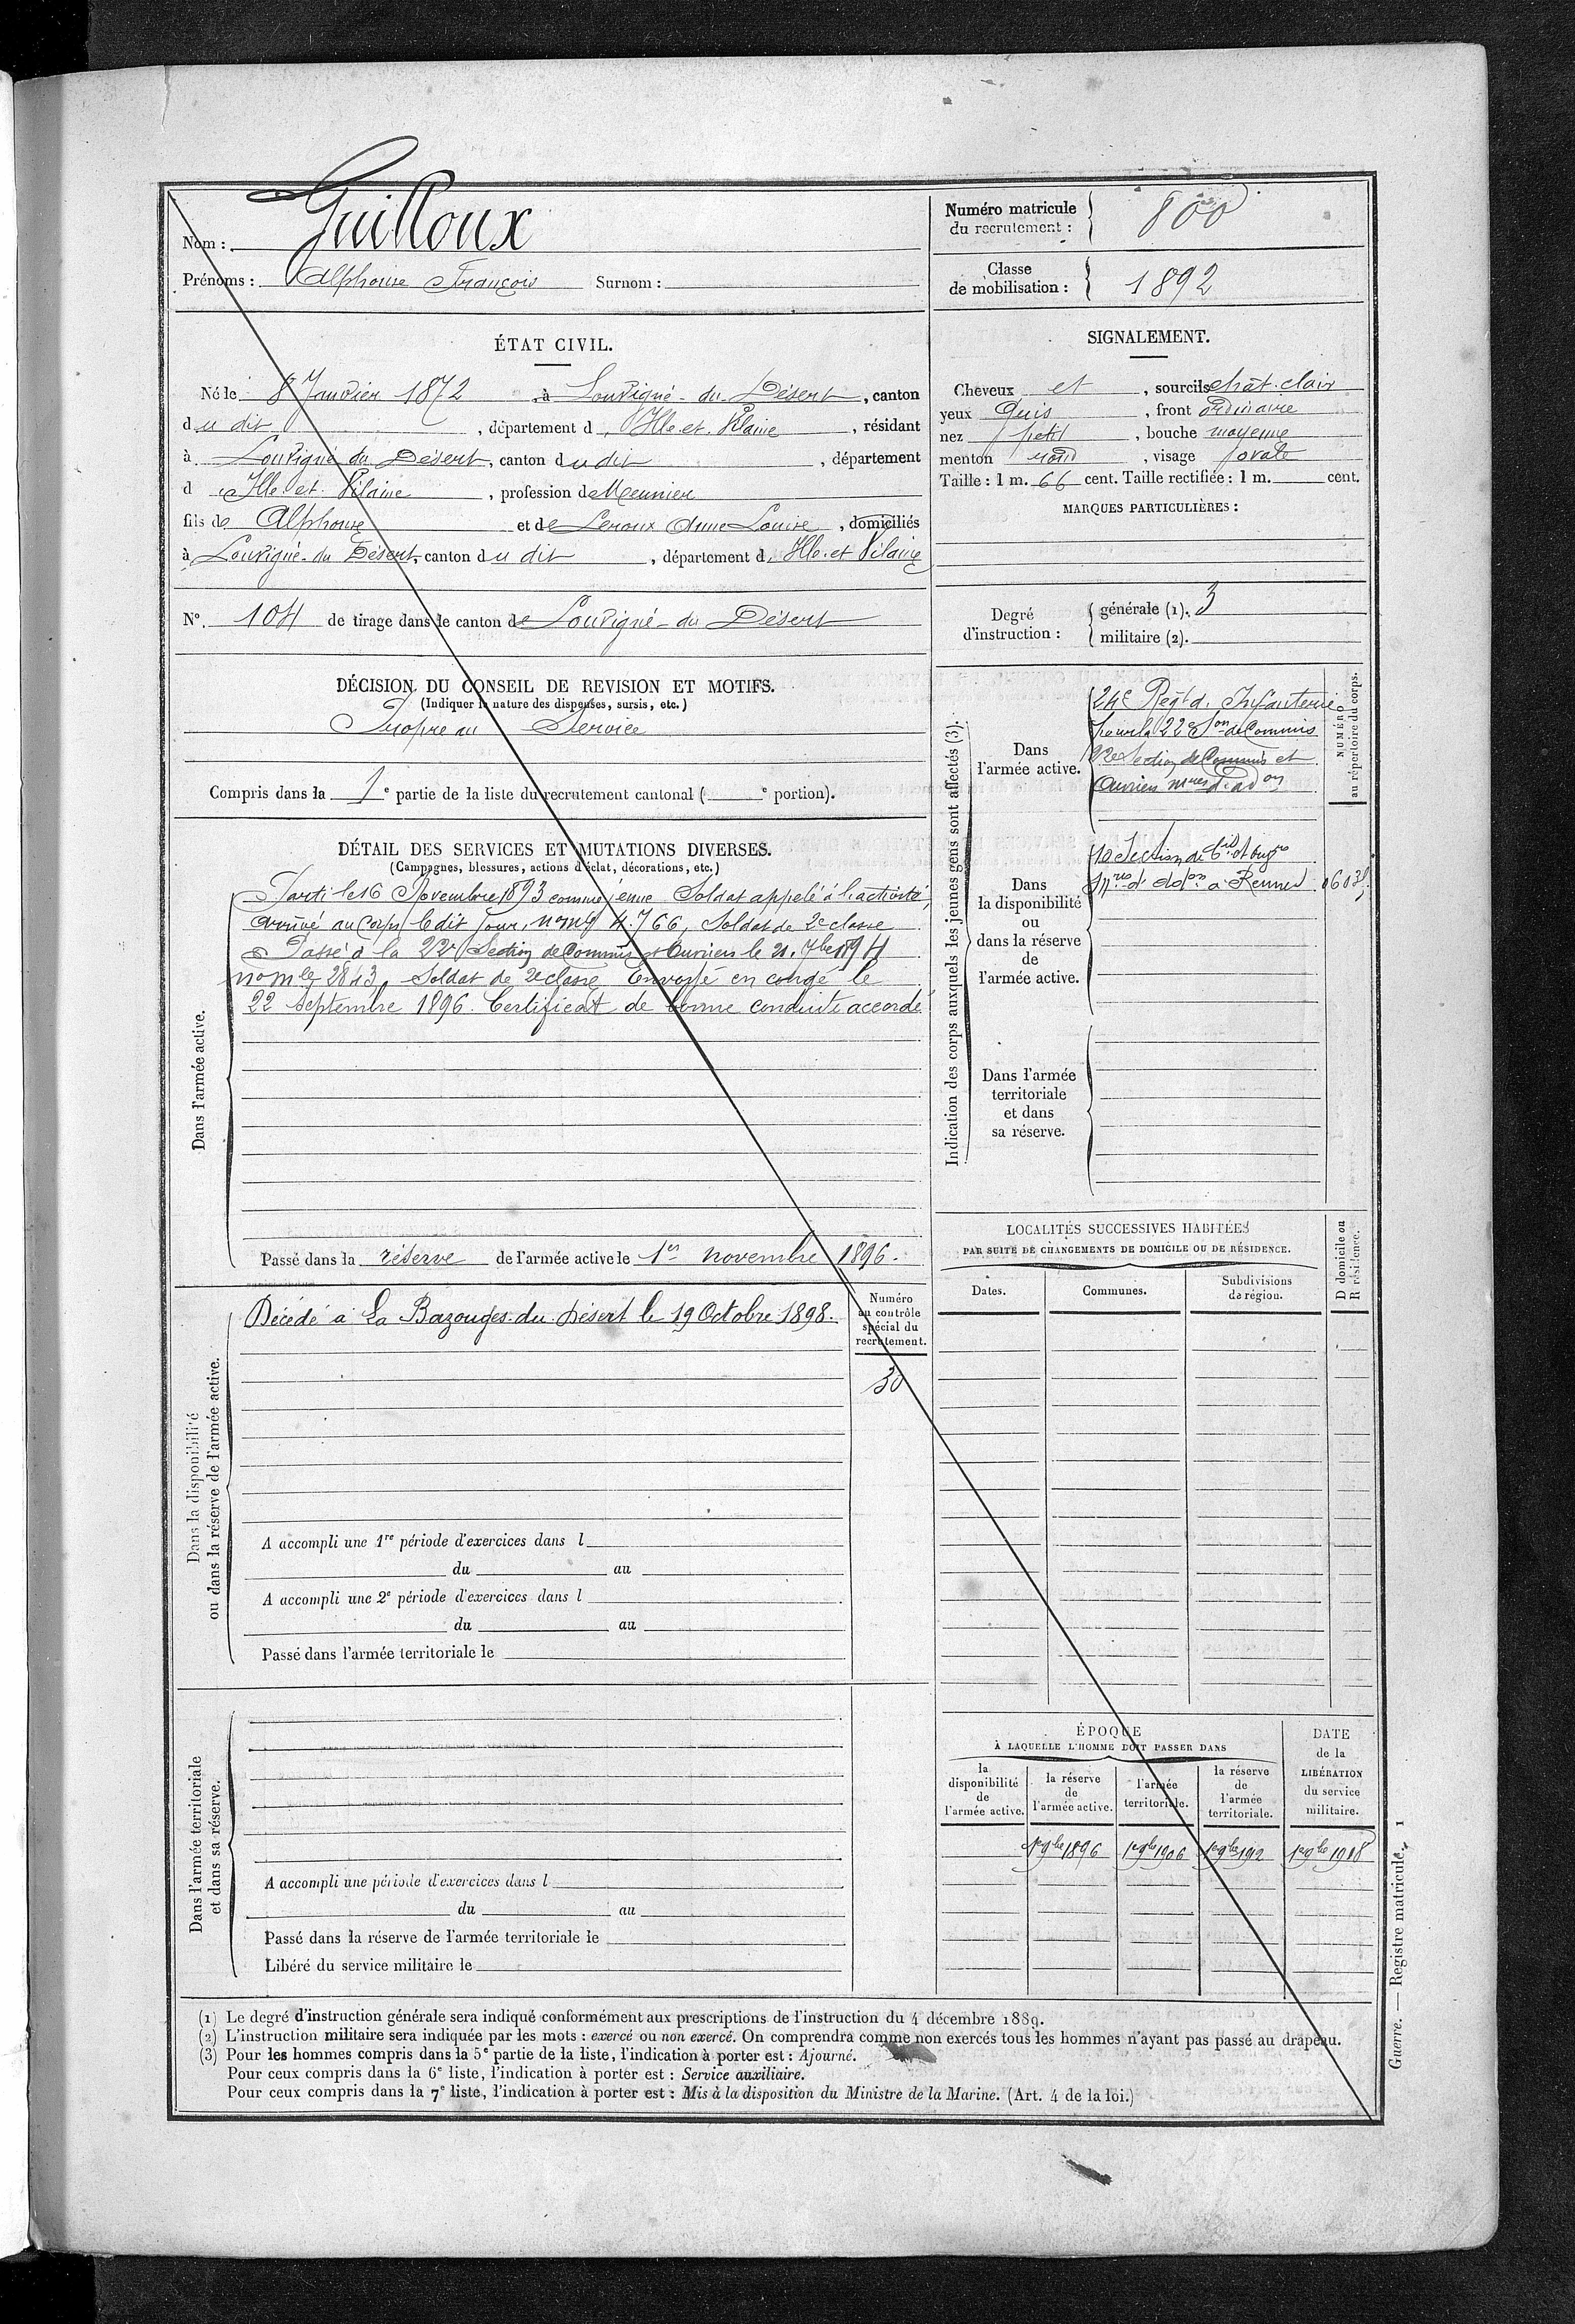 Nom : Guilloux
Prénoms : Alphonse François Surnom :
Numéro matricule du recrutement : 800
Classe de mobilisation : 1892
ÉTAT CIVIL.
Né le 8 Janvier 1872, à Louvigné-du-Désert, canton
du dit, département d Ille-et-Vilaine, résidant
à Louvigné du Désert, canton du dit, département
d Ille-et-Vilaine, profession de Meunier
fils de Alphonse et de Leroux Anne Louise, domiciliés
à Louvigné-du Désert, canton du dit, département d Ille-et Vilaine
N°. 104 de tirage dans le canton de Louvigné-du Désert
DÉCISION DU CONSEIL DE REVISION ET MOTIFS.
(Indiquer la nature des dispenses, sursis, etc.)
Propre au Service
Compris dans la 1e partie de la liste du recrutement cantonal ( e portion).
DÉTAIL DES SERVICES ET MUTATIONS DIVERSES.
(Campagnes, blessures, actions d'éclat, décorations, etc.)
Dans l'armée active.
Parti le 16 Novembre 1893 comme jeune Soldat appelé à l'activité,
arrivé au corps le dit jour, no mle 4.766, Soldat de 2e classe
Passé à la 22e Section de Commis et Ouvriers le 21. 7bre 1894
no mle 2843, Soldat de 2e classe Envoyé en congé le
22 septembre 1896. Certificat de bonne conduite accordé
Passé dans la réserve de l'armée active le 1er novembre 1896.
Dans la disponibilité
ou dans la réserve de l'armée active.
Décédé à La Bazouges-du-Désert le 19 Octobre 1898.
Numéro
au contrôle
spécial du
recrutement.
30
A accompli une 1re période d'exercices dans l
du au
A accompli une 2e période d'exercices dans l
du au
Passé dans l'armée territoriale le
Dans l'armée territoriale
et dans sa réserve.
A accompli une période d'exercices dans l
du au
Passé dans la réserve de l'armée territoriale le
Libéré du service militaire le
SIGNALEMENT.
Cheveux et, sourcils chât. clair
yeux Gris, front ordinaire
nez petit, bouche moyenne
menton rond, visage ovale
Taille : 1 m. 66 cent. Taille rectifiée : 1 m. cent.
MARQUES PARTICULIÈRES :
Degré d'instruction :
générale (1). 3
militaire (2).
Indication des corps auxquels les jeunes gens sont affectés (3).
NUMÉRO
au répertoire du corps.
Dans
l'armée active.
24e Régt d'Infanterie
pour la 22e Son de Commis
22e Section de Commis et
Ouvriers mres d'adon
Dans
la disponibilité
ou
dans la réserve
de
l'armée active.
10 Section de
mres d'Adon à Rennes
Dans l'armée
territoriale
et dans
sa réserve.
LOCALITÉS SUCCESSIVES HABITÉES
PAR SUITE DE CHANGEMENTS DE DOMICILE OU DE RÉSIDENCE.
D domicile ou
R résidence.
Dates. Communes. Subdivisions de région.
ÉPOQUE
À LAQUELLE L'HOMME DOIT PASSER DANS
la disponibilité de l'armée active.
la réserve de l'armée active.
l'armée territoriale.
la réserve de l'armée territoriale.
DATE de la LIBÉRATION du service militaire.
1er 9bre 1896 1er 9bre 1906 1er 9bre 1912 1er 9bre 1918
(1) Le degré d'instruction générale sera indiqué conformément aux prescriptions de l'instruction du 4 décembre 1889.
(2) L'instruction militaire sera indiquée par les mots : exercé ou non exercé. On comprendra comme non exercés tous les hommes n'ayant pas passé au drapeau.
(3) Pour les hommes compris dans la 5e partie de la liste, l'indication à porter est : Ajourné.
Pour ceux compris dans la 6e liste, l'indication à porter est : Service auxiliaire.
Pour ceux compris dans la 7e liste, l'indication à porter est : Mis à la disposition du Ministre de la Marine. (Art. 4 de la loi.)
Guerre. — Registre matricule. 1